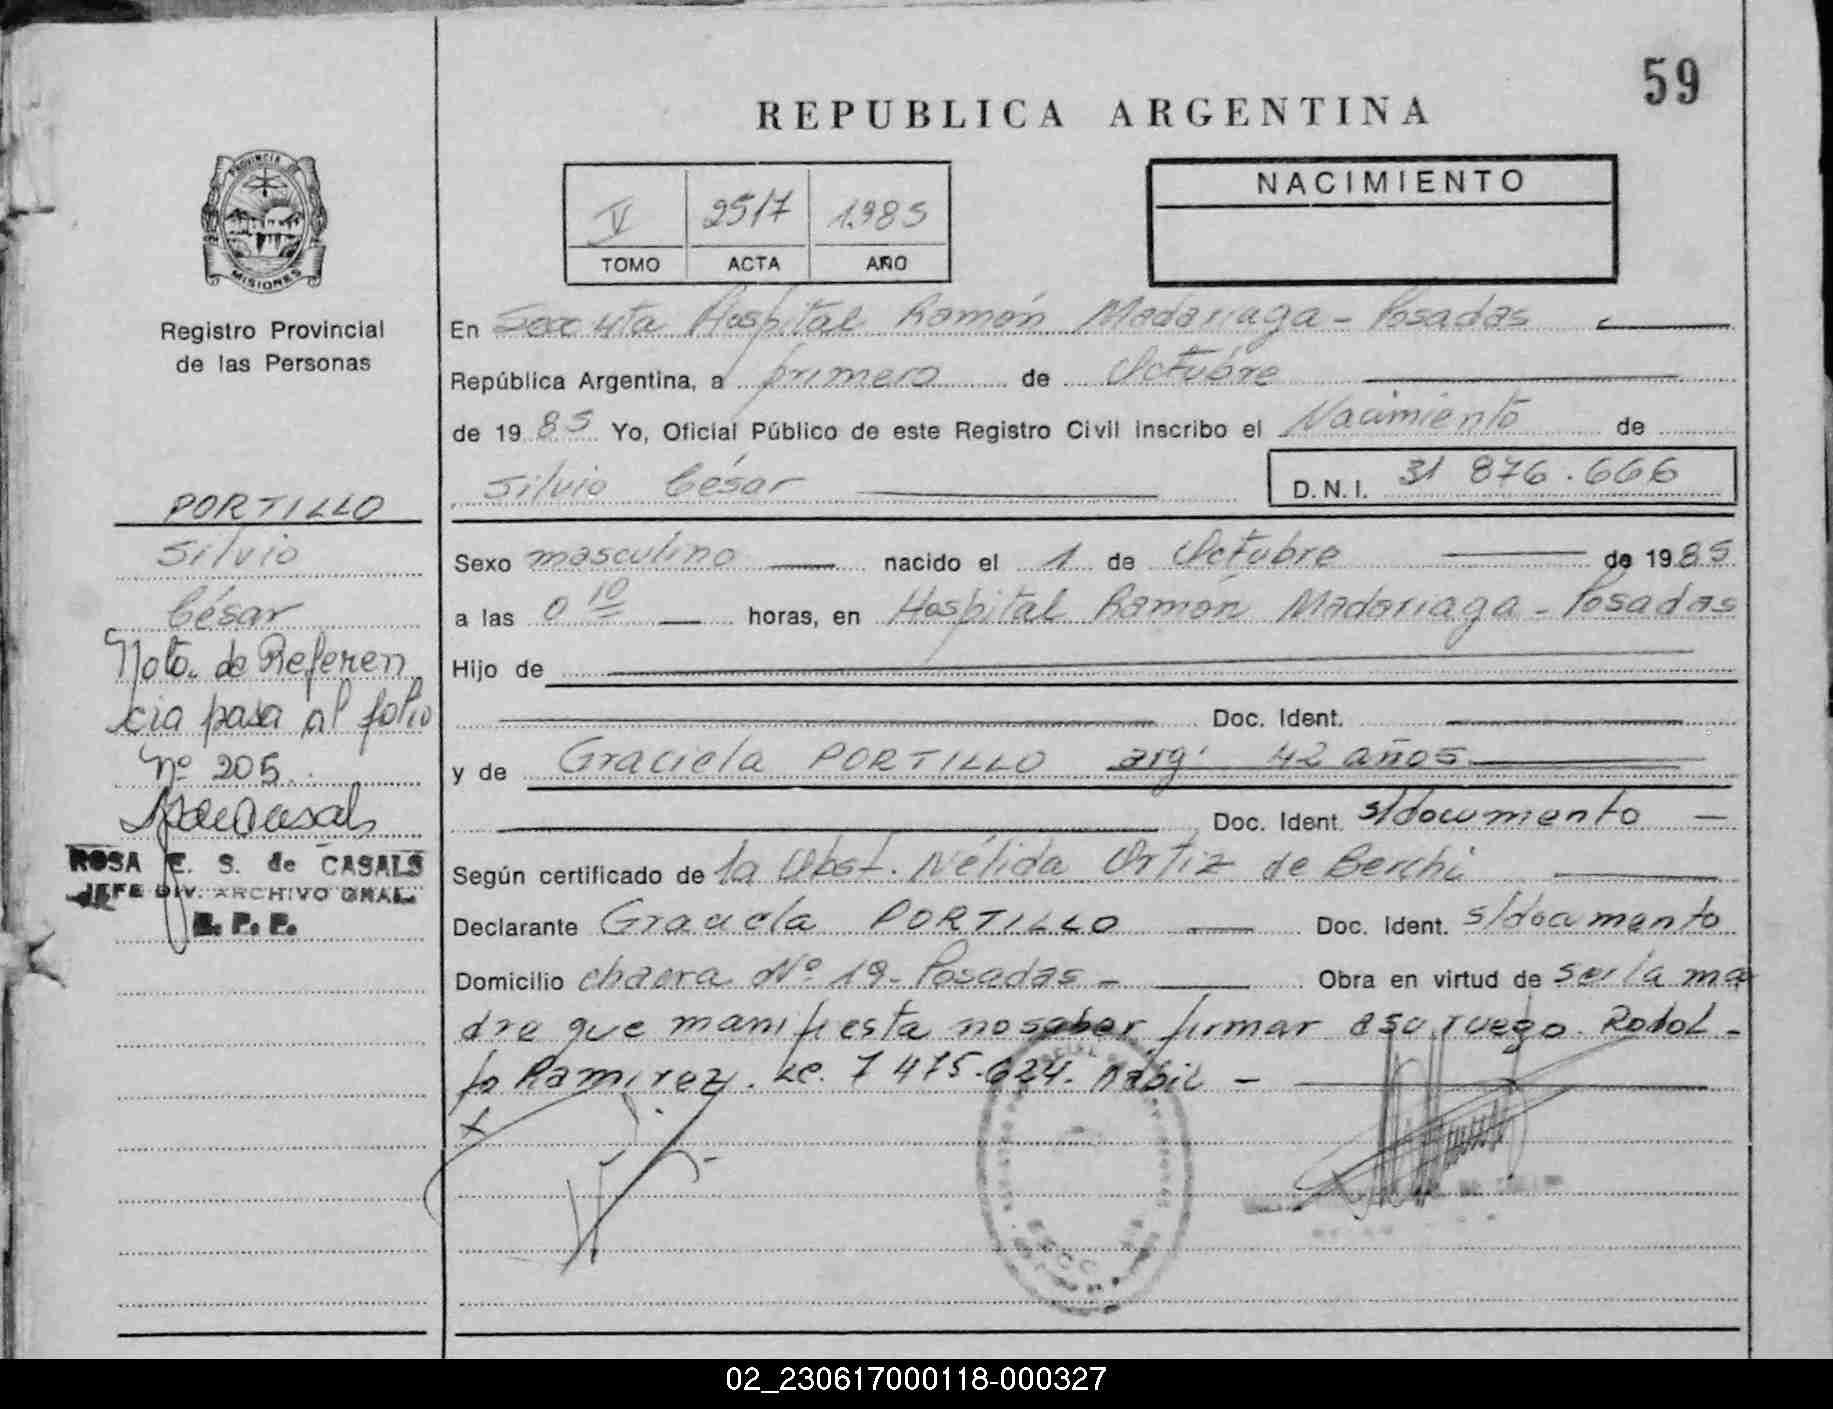 59
REPUBLICA ARGENTINA
PROVINCIA DE
MISIONES
Registro Provincial
de las Personas
V 2517 1.985
TOMO ACTA AÑO
NACIMIENTO
En Hospital Ramón Madariaga - Posadas
República Argentina, a primero de Octubre
de 1985 Yo, Oficial Público de este Registro Civil inscribo el Nacimiento de
Silvio César D.N.I. 31 876.666
PORTILLO
Silvio
César
Nota de Referen
cia pasa al folio
nº 205.
ROSA E. S. de CASALS
JEFE DIV. ARCHIVO GRAL.
R. P. P.
Sexo masculino nacido el 1 de Octubre de 1985
a las 0 10 horas, en Hospital Ramón Madariaga - Posadas
Hijo de
Doc. Ident.
y de Graciela PORTILLO arg. 42 años
Doc. Ident. s/documento
Según certificado de la Obst. Nélida Ortiz de Berchi
Declarante Graciela PORTILLO Doc. Ident. s/documento
Domicilio chacra Nº 19 - Posadas - Obra en virtud de ser la ma
dre que manifiesta no saber firmar a su ruego Rodol-
fo Ramirez. 7 475.624. habil -
02_230617000118-000327